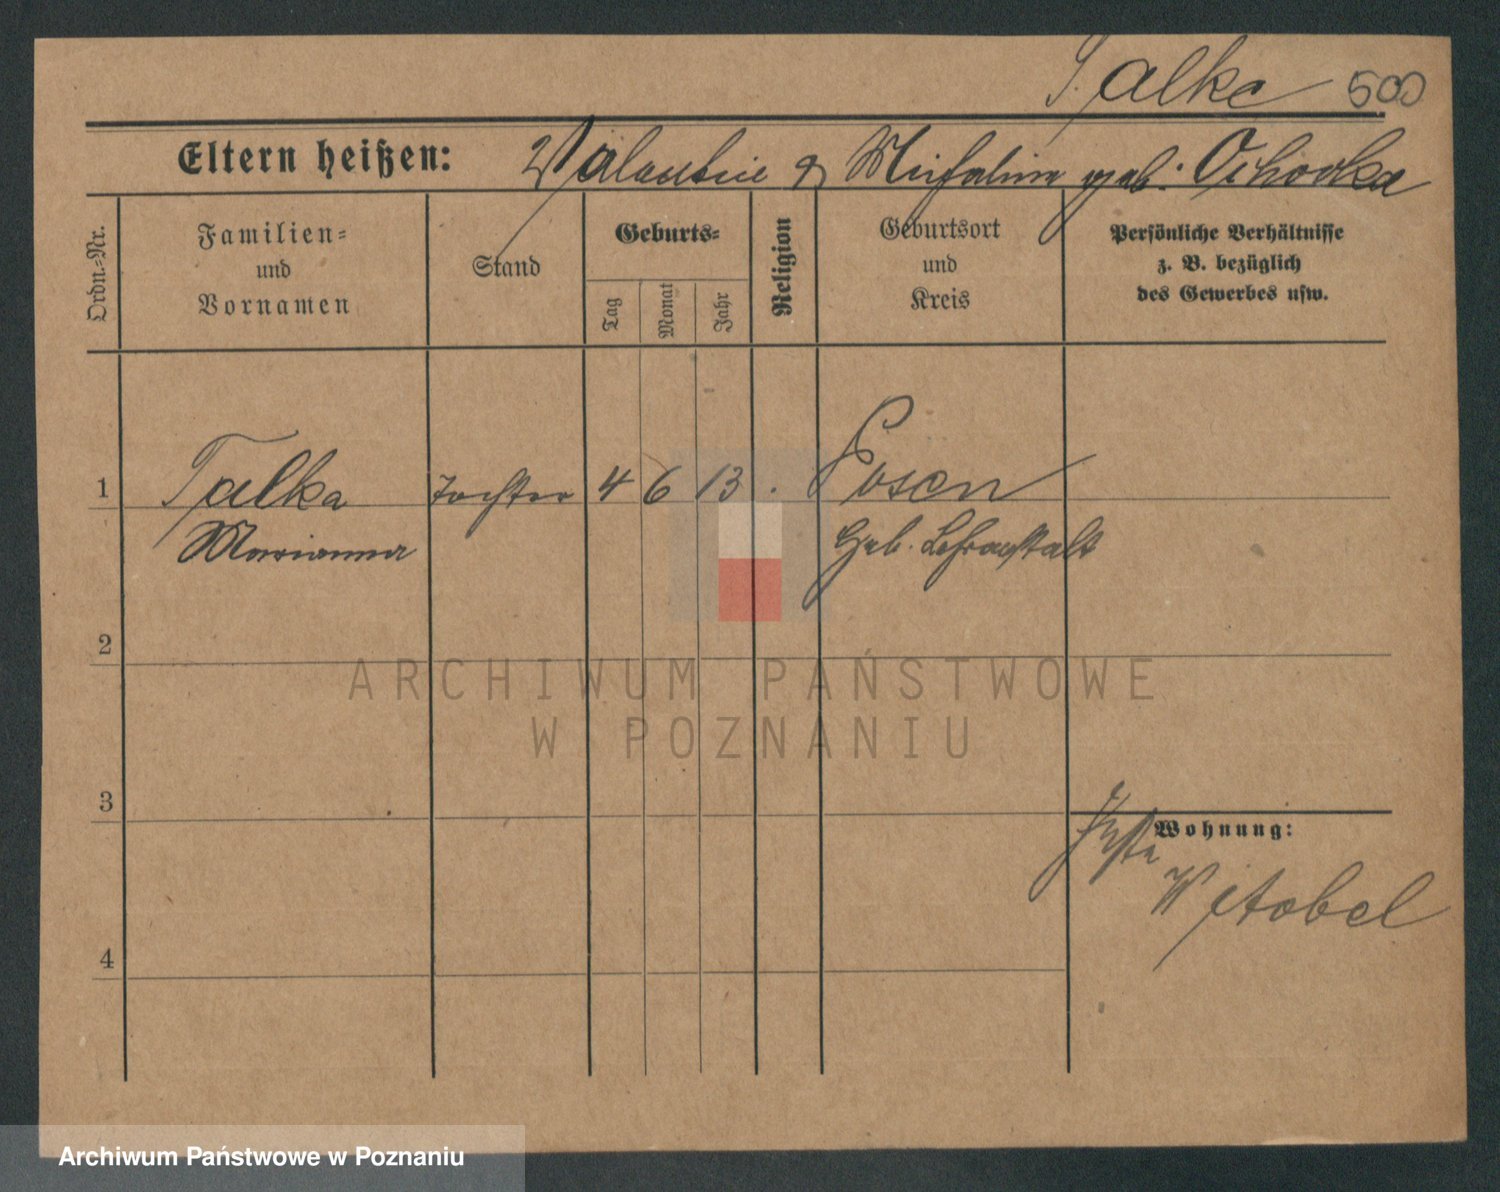 Talka 500
Eltern heißen: Valentin & Michalina geb. Cichocka
Ordn.=Nr.
Familien=
und
Vornamen
Stand
Geburts=
Tag
Monat
Jahr
Religion
Geburtsort
und
Kreis
Persönliche Verhältnisse
z. B. bezüglich
des Gewerbes usw.
1 Talka Tochter 4 6 13 . Posen
Marianna Geb. Lehranstalt
2
ARCHIWUM PAŃSTWOWE
W POZNANIU
3
Wohnung:
Witobel
4
Archiwum Państwowe w Poznaniu